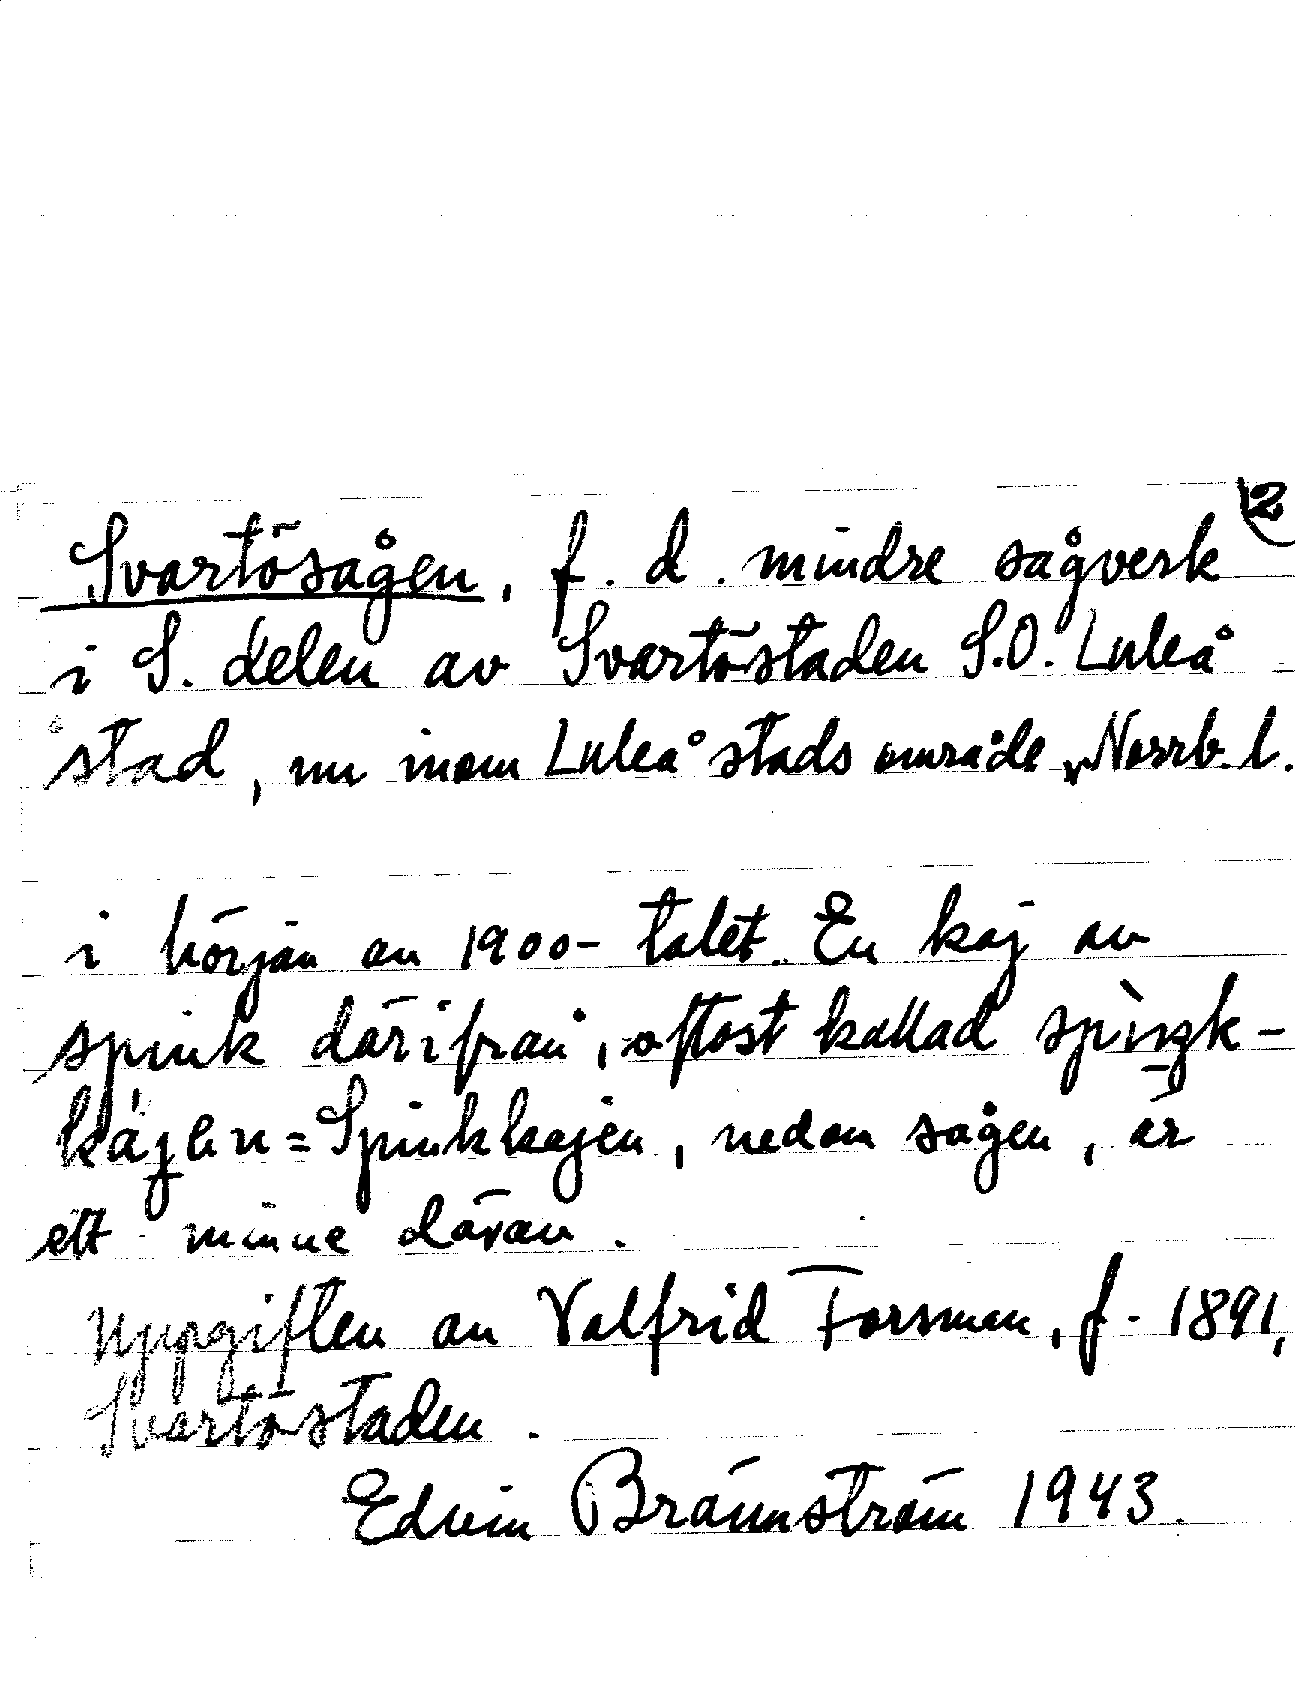 2
Svartösågen, f. d. mindre sågverk
i S. delen av Svartöstaden S.O. Luleå
stad, nu inom Luleå stads område, Norrb. l.
i början av 1900-talet. En kaj av
spink därifrån, oftast kallad spìŋk-
kájen = Spinkkajen, nedom sågen, är
ett minne därav.
Uppgiften av Valfrid Forsman, f. 1891,
Svartöstaden.
Edvin Brännström 1943.